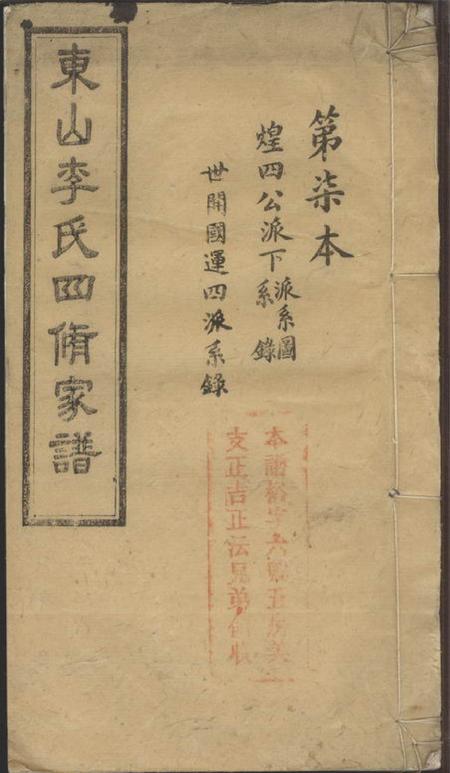 第柒本
煌四公派下派系圖系錄
世開國運四派系錄
東山李氏四脩家譜
本譜 字 五房
支正吉正法兄弟 收